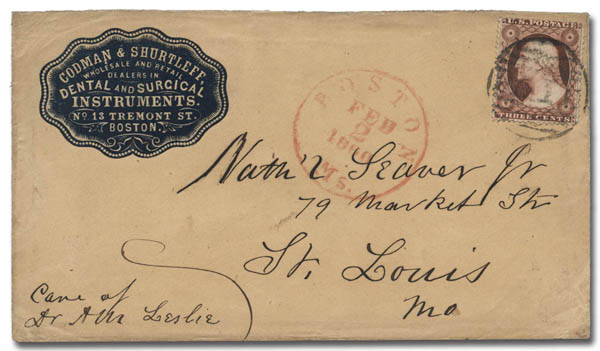 CODMAN & SHURTLEFF,
WHOLESALE AND RETAIL
DEALERS IN
DENTAL AND SURGICAL
INSTRUMENTS.
No 13 TREMONT ST.
BOSTON.
U.S. POSTAGE
THREE CENTS
BOSTON
FEB
2
Ms.
Nath'l Seaver Jr
79 Market Str
St. Louis
Mo
Care of
Dr A M Leslie